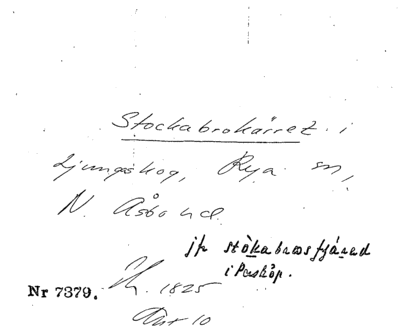 Stockabrokärret i
Ljungskog, Rya sn,
N. Åsbo hd.
jfr stòkabrosfjärad
i Perstorp.
Nr 7379. 1825
Akt 10